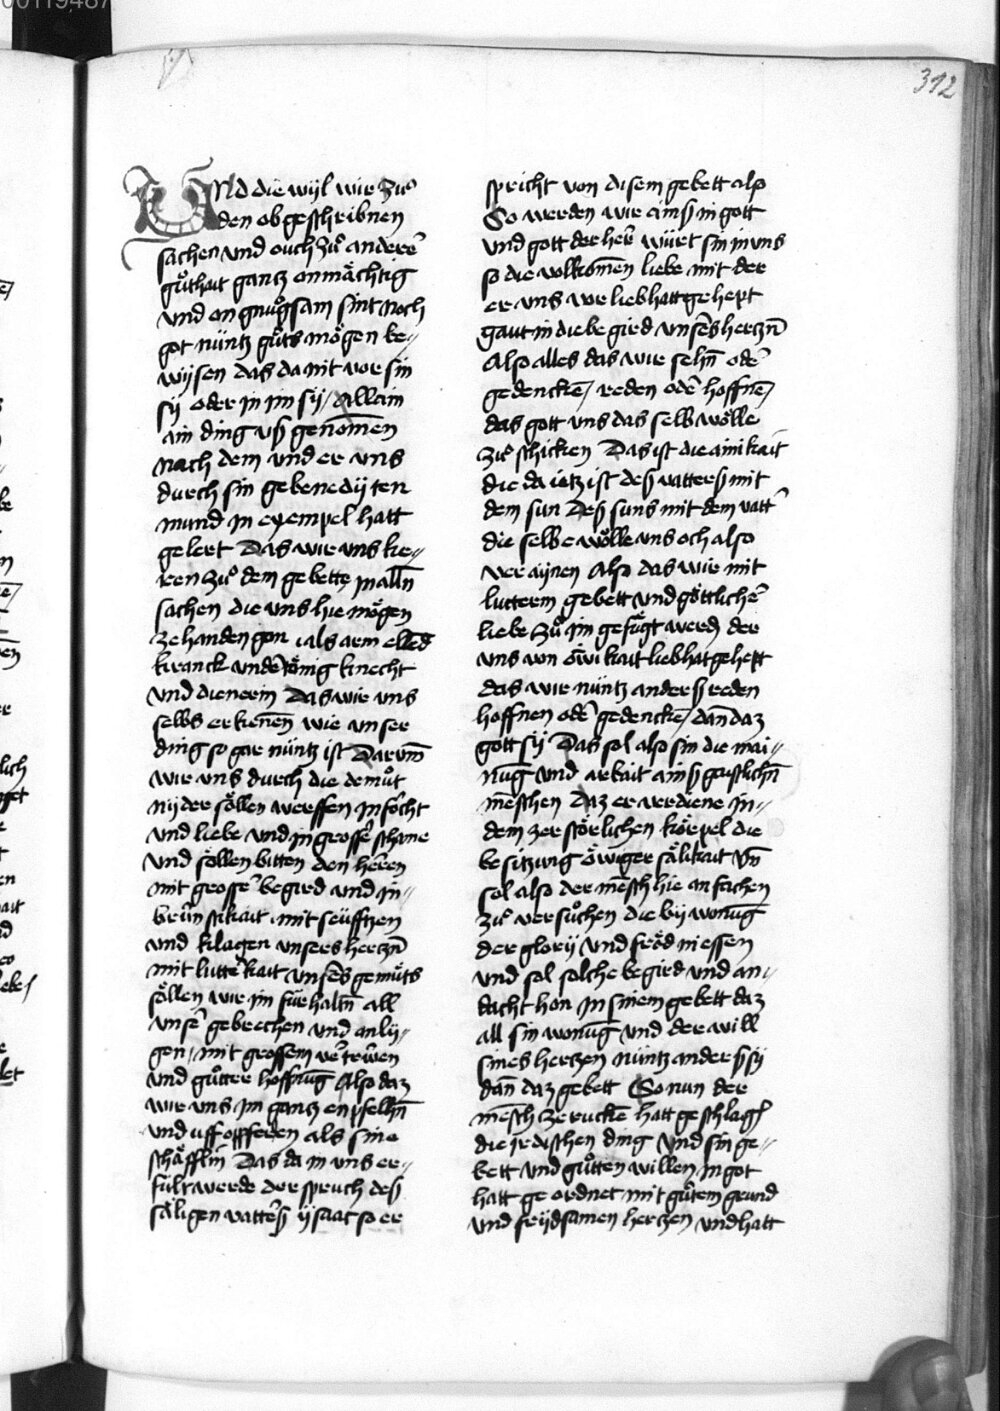 312
Vnd die wÿl wir zuͦ
den obgeschribnen
sachen vnd ouch zuͦ anderē
guͦthait gantz onmächtig
vnd on gnuͦgsam sint noch
got nüntz guͦts mögen be//
wÿsen das da mit vor sin
sÿ oder in im sÿ / Allain
ain ding vß genōmen
nach dem vnd er vns
durch sin gebenedÿten
mund in exempel hatt
gelert Das wir vns ke//
ren zuͦ dem gebette in alln̄
sachen die vns hie mögen
ze handen gon als arm ellēd
kranck vnd
vnd dienerin Das wir vns
selbs erkēnen wie vnser
ding so gar nüntz ist Darum̄
wir vns durch die demuͦt
nÿder söllen werffen in forcht
vnd liebe vnd in grosser schame
vnd söllen bitten den heren
mit grosser begird vnd in//
brün stikait mit seüfftzen
vnd klagen vnsers hertzn̄
mit lutterkait vnsers gemuͤts
söllen wir im für haltn̄ all
vnser gebrechen vnd anlÿ//
gen / mit grossem vertruwen
vnd guͦtter hoffnūg Also daz
wir vns im gantz enpfelhn̄
vnd uff opfferen als sine
schäfflin Das da in vns er//
fült werde der spruch deß
säligen vatterß ÿsaac so er
spricht von disem gebett also
So werden wir ainß in gott
vnd gott der her würt sin in vns
so die volkomen liebe mit der
er vns vor liebhatt gehept
gaut in die begird vnsers hertzn̄
Also alles das wir sehn̄ oder
gedencken / reden oder hoffnen /
das gott vns das selb wölle
zuͦ schicken Das ist die ainikait
die da ietz ist deß vatterß mit
dem sun Deß suns mit dem vatter
die selbe wölle vns och also
veraÿnen Also das wir mit
lutterm gebett vnd göttlicher
liebe zuͦ im gefuͤgt werdn̄ der
vns von ewikait liebhat gehept
das wir nüntz anderß reden
hoffnen oder gedencken / dan̄ daz
gott sÿ Das sol also sin die mai//
nūg vnd arbait ainß gaistlichn̄
menschen Daz er verdiene in//
dem zerstörlichen körpel die
besitzung ewiger sälikait Vn̄
sol also der mensch hie anfachen
zuͦ versuͦchen die bÿwonūg
der glorÿ vnd fröd niessen
vnd sol solche begird vnd an//
dacht hon in sinem gebett daz
all sin wonūg vnd der will
sines hertzen nüntz anderß sÿ
dan̄ daz gebett So nun der
mensch ze rucken hatt geschlagn̄
die irdischen ding vnd sin ge//
bett vnd guͦtten willen in got
hatt geordnet mit guͦtem grund
vnd fridsamen hertzen vnd hatt